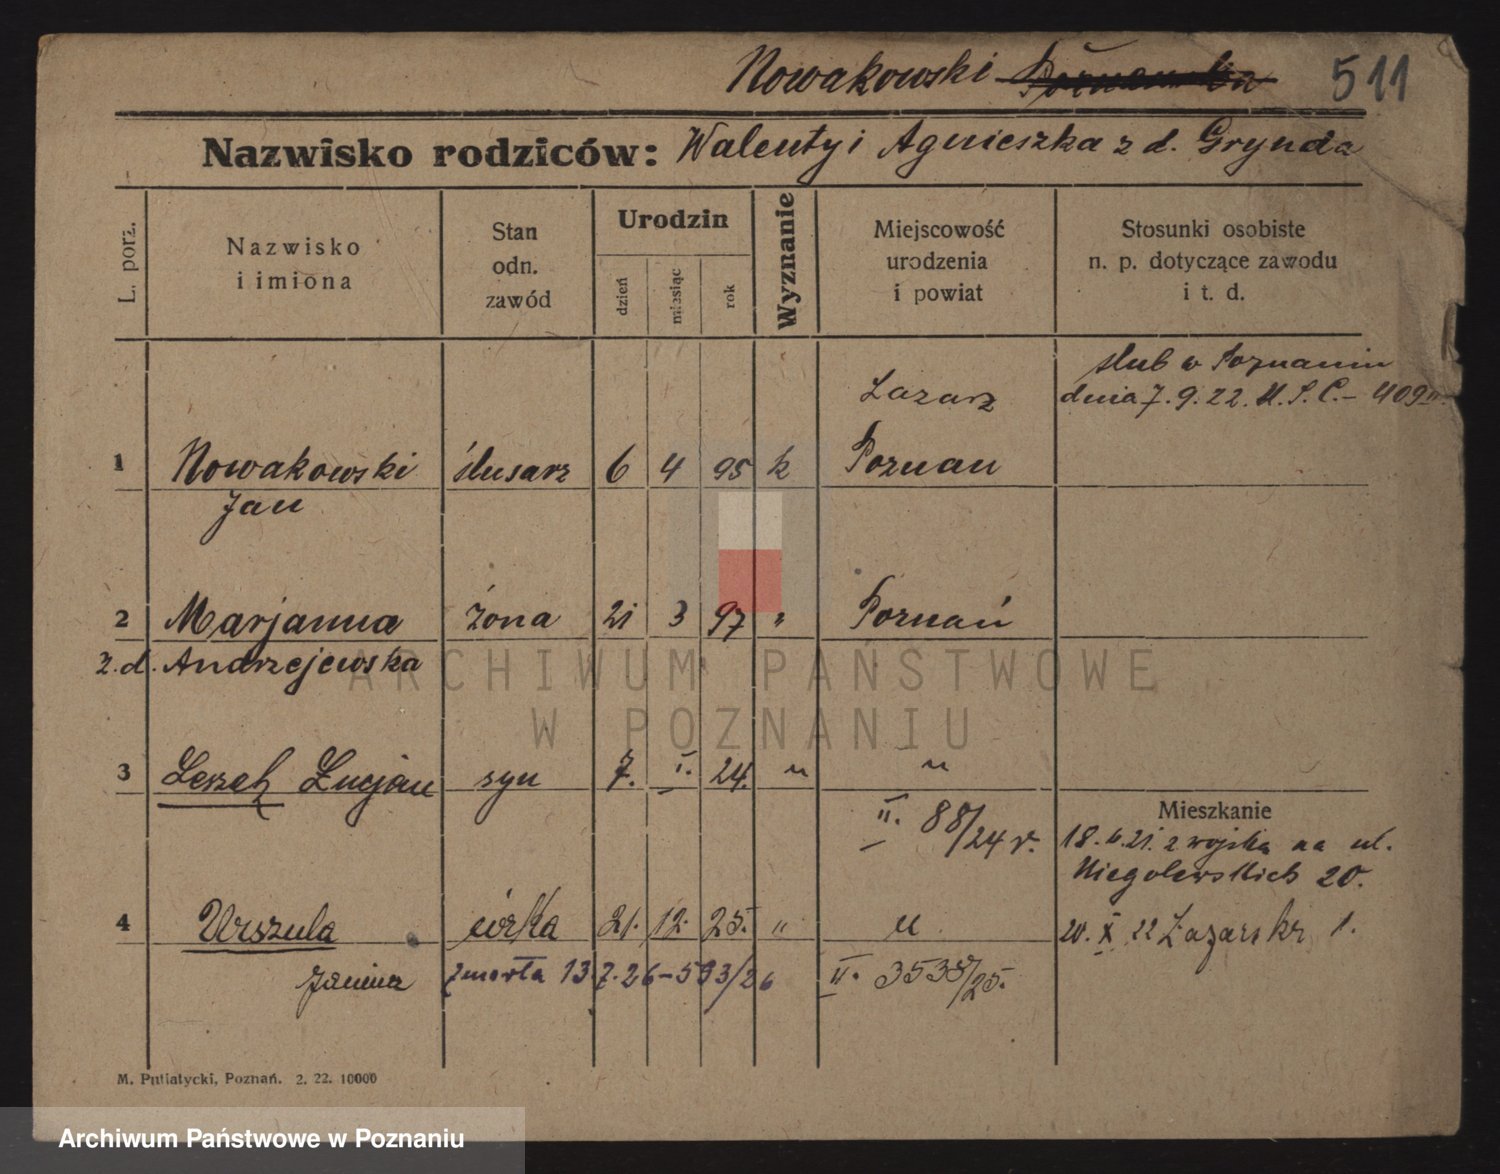 Nowakowski 511
Nazwisko rodziców: Walenty i Agnieszka z d. Grynda
L. porz.
Nazwisko
i imiona
Stan
odn.
zawód
Urodzin
dzień
miesiąc
rok
Wyznanie
Miejscowość
urodzenia
i powiat
Stosunki osobiste
n. p. dotyczące zawodu
i t. d.
ślub w Poznaniu
Łazarz dnia 7.9.22. U.S.C. – 409
1 Nowakowski ślusarz 6 4 95 k Poznań
Jan
2 Marjanna żona 21 3 97 " Poznań
z.d. Andrzejewska
ARCHIWUM PAŃSTWOWE
W POZNANIU
3 Leszek Lucjan syn 7. I. 24. " "
Mieszkanie
II. 88/24 r. 18. 6. 21. z wojska na ul.
Niegolewskich 20.
4 Urszula córka 21. 12. 25. " " 20. X 22 Łazarska 1.
Janina zmarła 13.7.26 – 593/26 II. 3538/25.
M. Putiatycki, Poznań. 2. 22. 10000
Archiwum Państwowe w Poznaniu